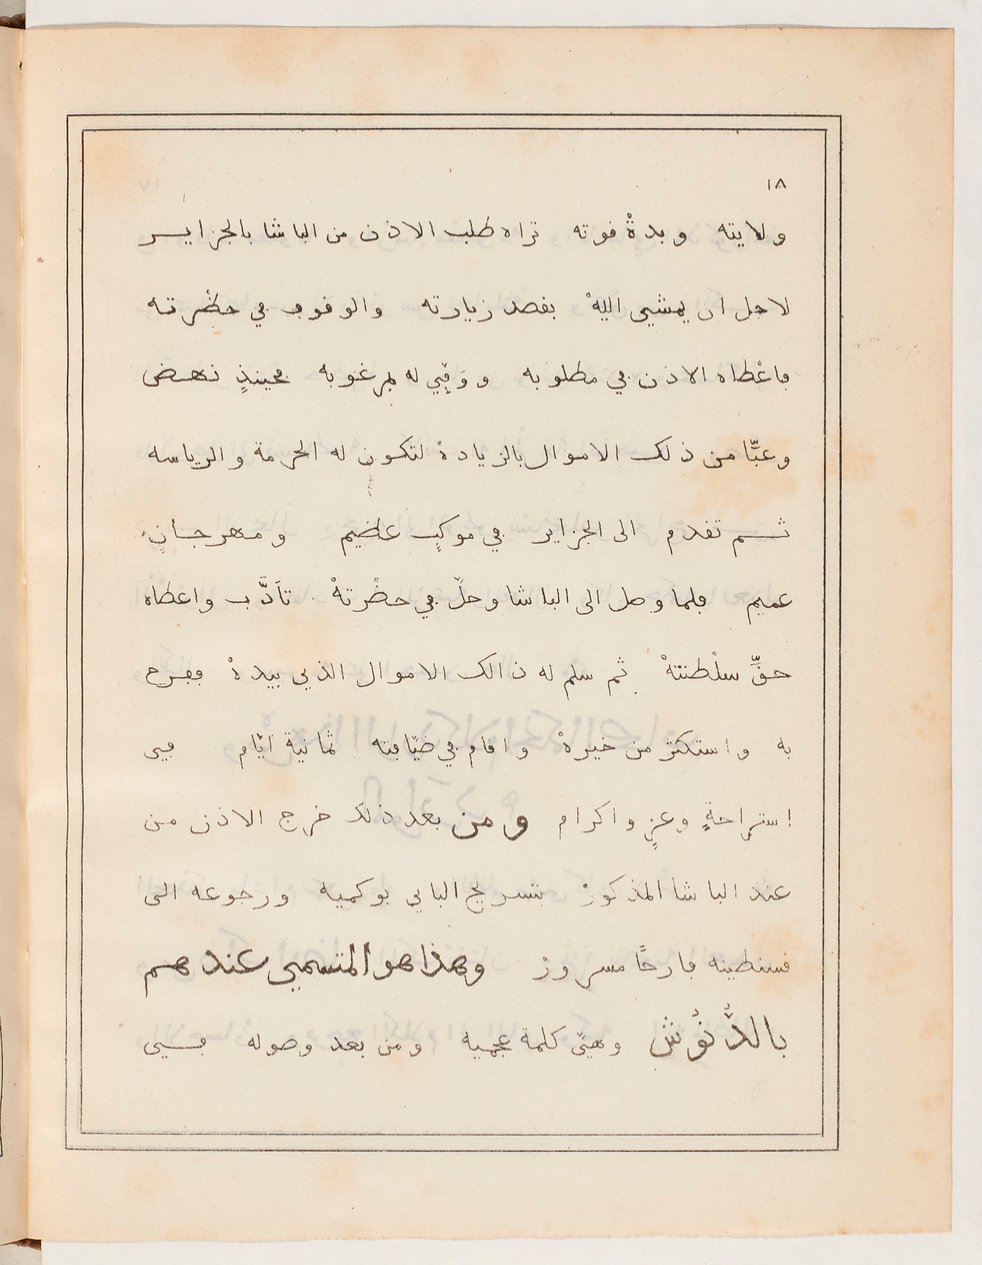 ١٨
ولايته وبدةْ فوته تراه طلب الاذن من الباشا بالجزايــر
لاجل ان يمشيى اليهْ بفصد زيارته والوفوب في حضْرتـه
باعْطاه الاذن في مطلوبه ووَفّيِى له لمرغوبه بحينذٍ نـهـض
وعبّا من ذلك الاموال بالزيادة لتكون له الحرمة والرياسه
ثــم تفدم الى الجزاير في موكبٍ عظيم ومـهرجـانٍ
عميم بلما وصل الى الباشا وحلّ في حضْرتهْ تاَدَّب واعطاه
حـقِّ سلْطنتهْ ثم سلم له ذالك الاموال الذي بيدهْ ببرح
به واستكثر من خيرهْ وافام في ضيّابته ثمانية ايّام فيى
استراحةٍ وعزٍ واكرام ومن بعد ذلك خرج الاذن من
عند الباشا المذكورْ بتسريح الباي بوكميه ورجوعه الى
فسنطينه بارحًا مسرورْ وهذا هو المتسمي عندهـم
بالدَّنُوُش وهيّى كلمة عجميه ومن بعد وصوله فـيى